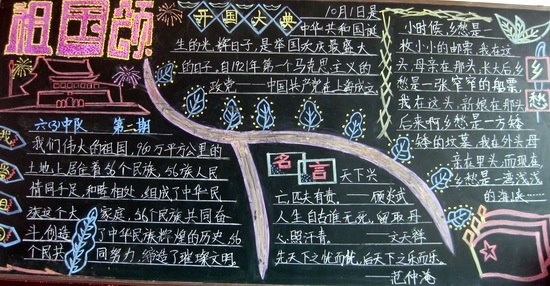 祖国颂
开国大典
10月1日是
中华共和国诞
生的光辉日子,是举国欢庆最盛大
的日子,自1921年第一个马克思主义的
政党——中国共产党在上海成立
六(3)中队 第二期
我们伟大的祖国,960万平方公里的
土地上居住着56个民族,56族人民
情同手足,和睦相处,组成了中华民
族这个大家庭,56个民族共同奋
斗,创造了中华民族辉煌的历史,56
个民共同努力,缔造了璀璨文明。
名言
天下兴
亡匹夫有责。——顾炎武
人生自古谁无死,留取丹
心照汗青。——文天祥
先天下之忧而忧,后天下之乐而乐。
——范仲淹
乡愁
小时候,乡愁是一
枚小小的邮票,我在这
头,母亲在那头,长大后,乡
愁是一张窄窄的船票,
我在这头,新娘在那头
后来啊,乡愁是一方矮
矮的坟墓,我在外头,母
亲在里头,而现在,
乡愁是一湾浅浅
的海峡……